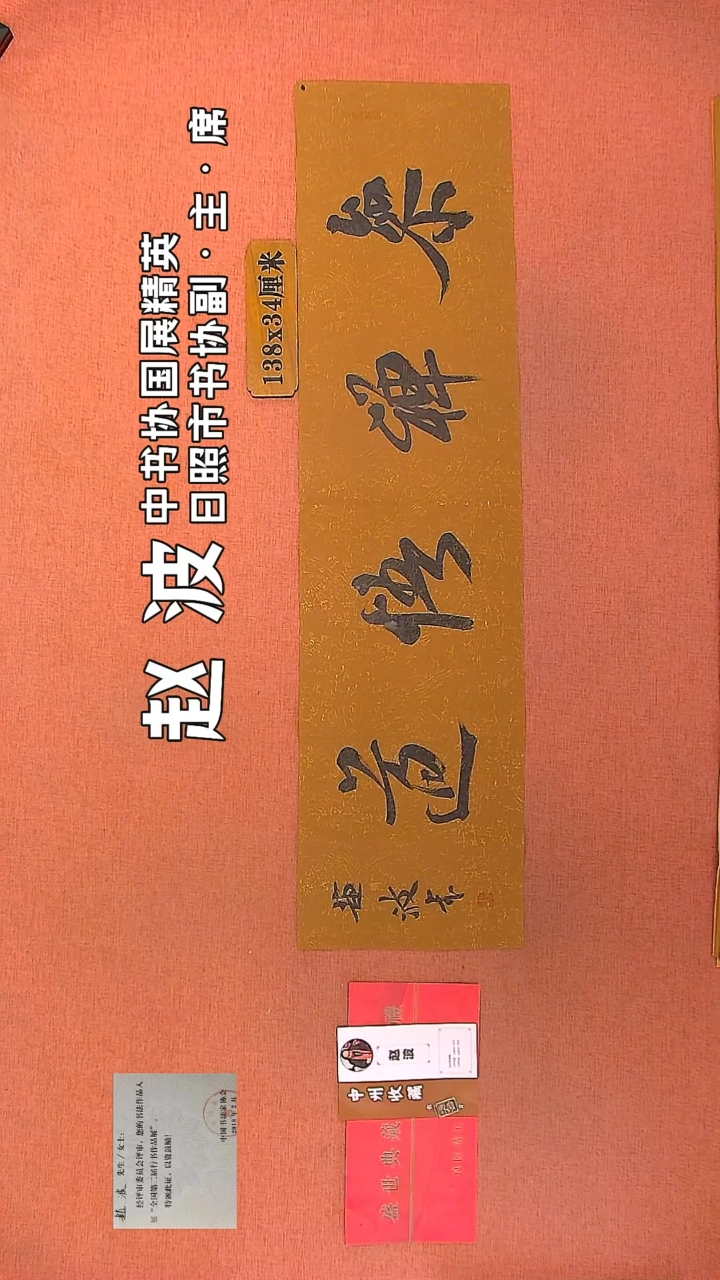 赵 波
中书协国展精英
日照市书协副·主·席
138x34厘米
參禪悟道
趙波书
赵波 先生/女士:
经评审委员会评审,您的书法作品入
展“全国第二届行书作品展”。
特颁此证,以资鼓励!
中国书法家协会
2018年2月
赵波
中州收藏
盛世典藏
禮